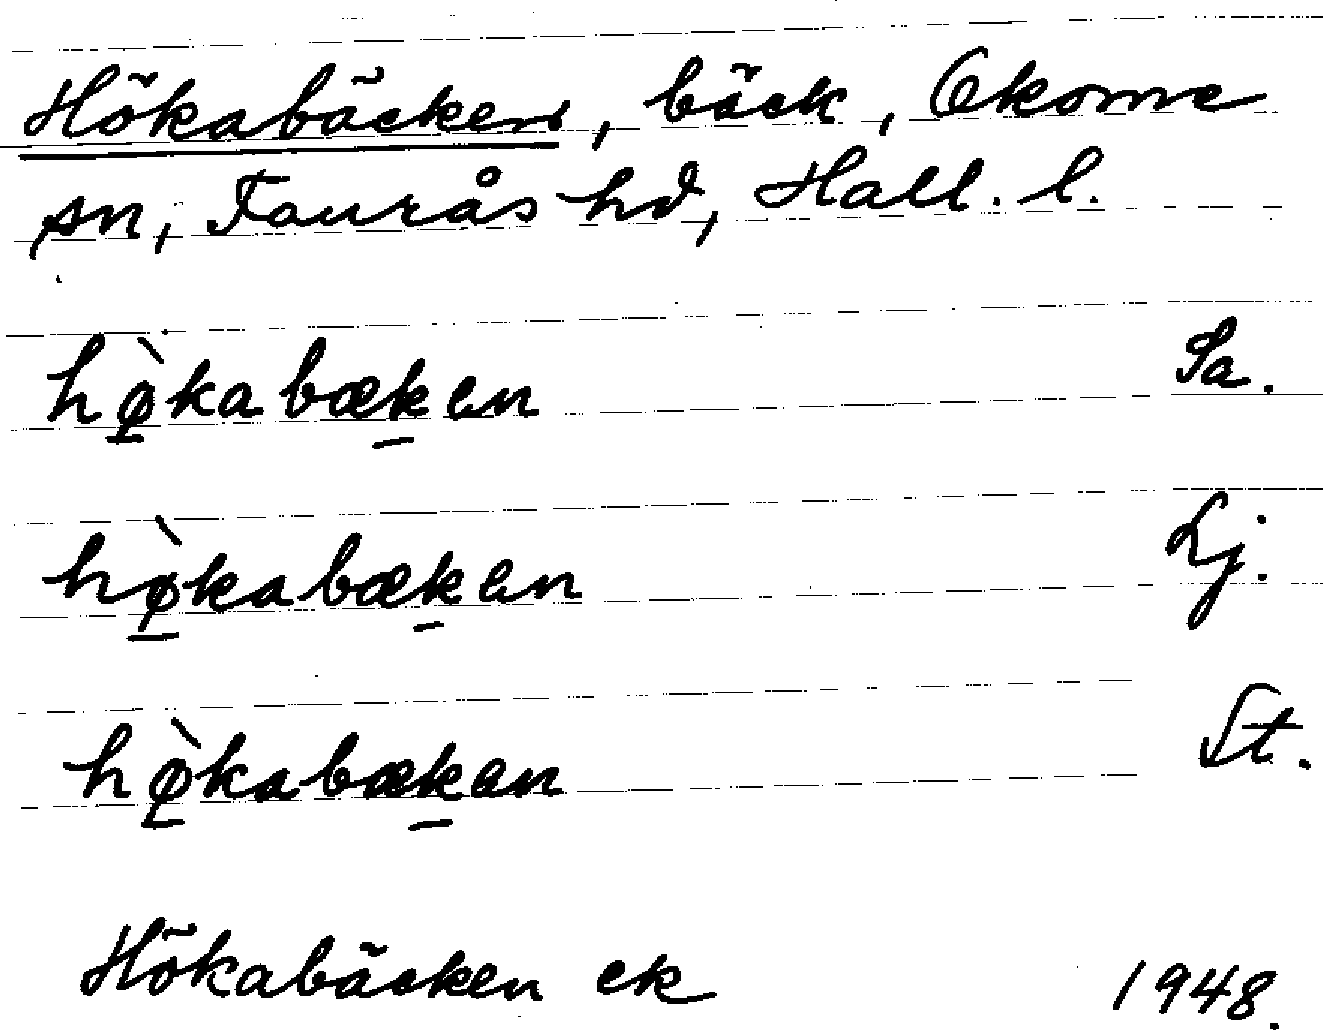 Hökabäcken, bäck, Okome
sn, Faurås hd, Hall. l.
hø̀kabæken Sa.
hø̀kabækan Lj.
hø̀kabækan St.
Hökabäcken ek 1948.